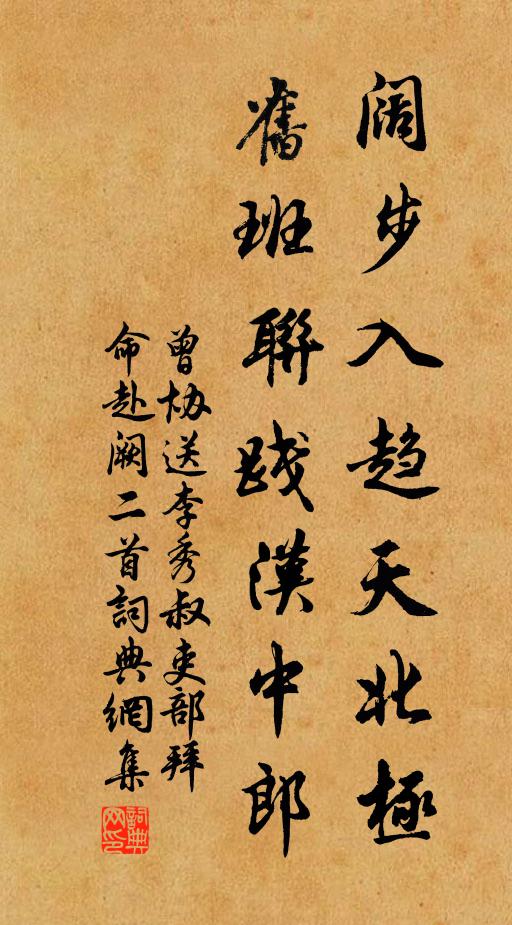 阔步入趋天北极
旧班聯践漢中郎
曾协送李秀叔吏部拜
命赴阙二首詞典網集
詞典网印